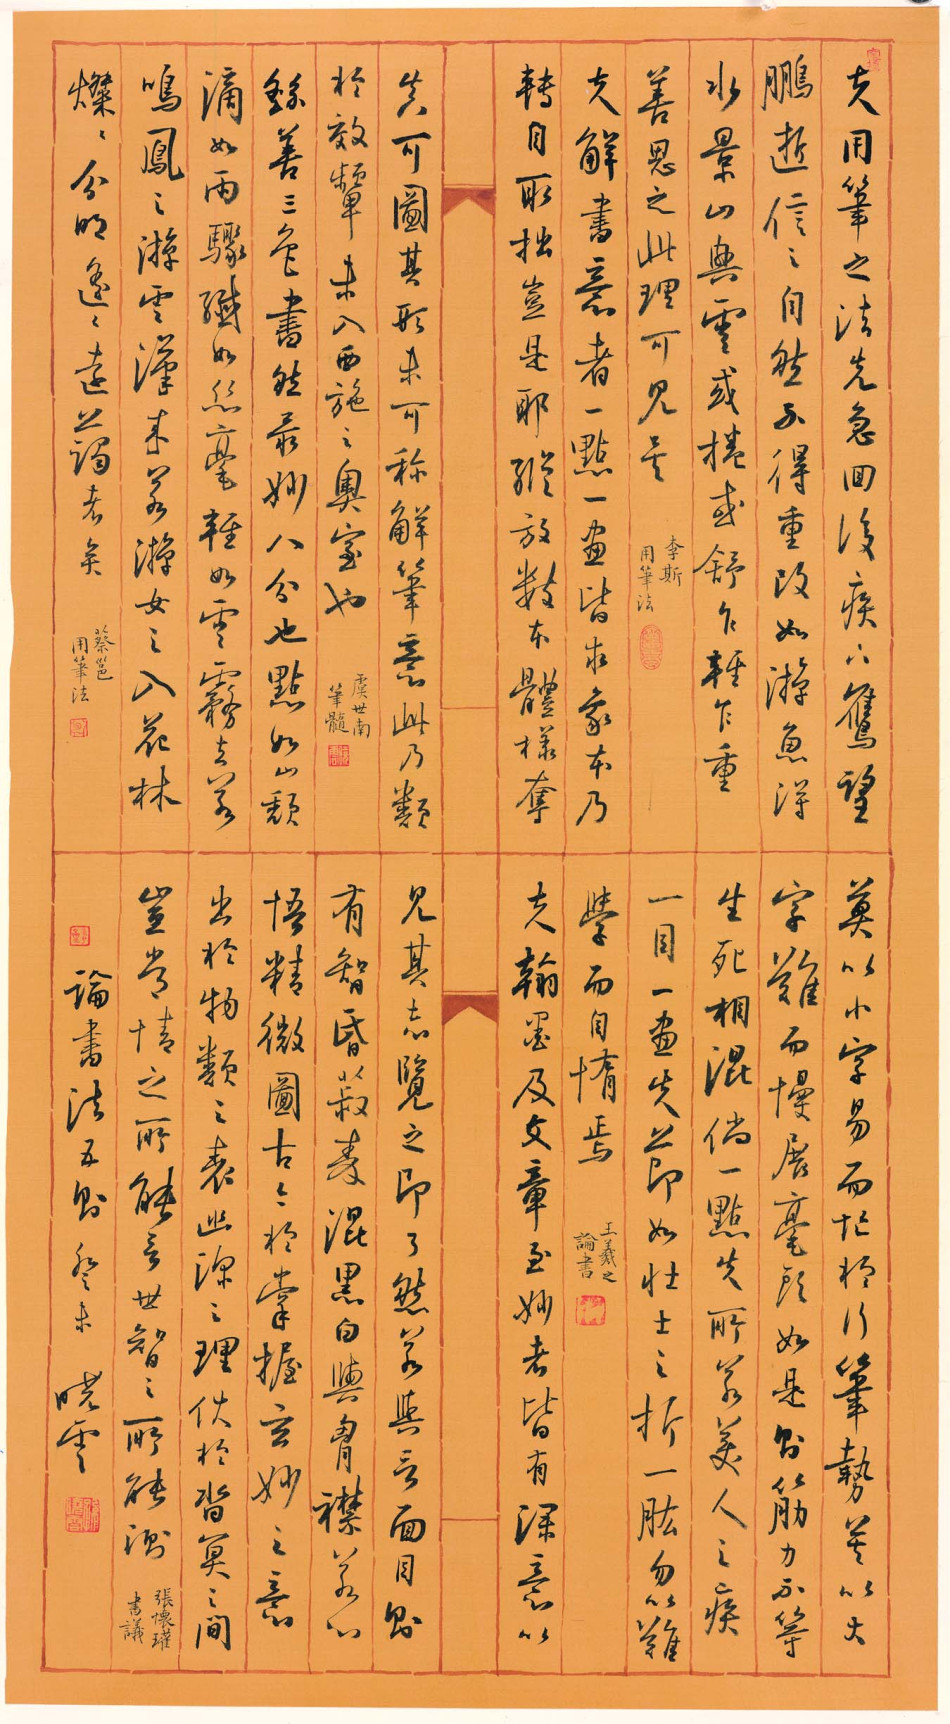 夫用筆之法先急回後疾下鷹望
鵬逝信之自然不得重改如游魚得
水景山興雲或捲或舒乍輕乍重
善思之此理可見矣
李斯
用筆法
夫解書意者一點一畫皆求象本乃
轉自取拙豈是耶縱放類本體樣奪
真可圖其形未可称解筆意此乃類
於效顰未入西施之奧室也
虞世南
筆髓
繇善三色書然最妙八分也點如山頹
滴如雨驟纖如絲毫輕如雲霧去若
鳴鳳之游雲漢来若游女之入花林
燦燦分明遥遥遠上謁者矣
蔡邕
用筆法
莫以小字易而忙於行筆勢莫以大
字難而慢展毫頭如是則筋力不等
生死相混倘一點失所若美人之病
一目一畫失節如壯士之折一肱勿以難
學而自惰焉
王羲之
論書
夫翰墨及文章至妙者皆有深意以
見其志覽之即了然若與言面目則
有智昏以菽麥混黑白與胷襟若心
悟精微圖古今於掌握玄妙之意
出於物類之表幽深之理伏於杳冥之間
豈常情之所能言世智之所能測
張懷瓘
書議
論書法五則癸未
曉雲